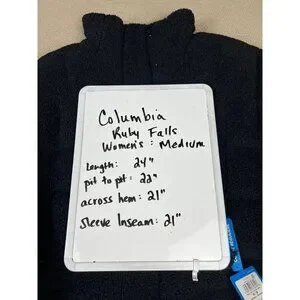 Columbia
Ruby Falls
Women's : Medium
Length: 24"
pit to pit: 22"
across hem: 21"
Sleeve Inseam: 21"